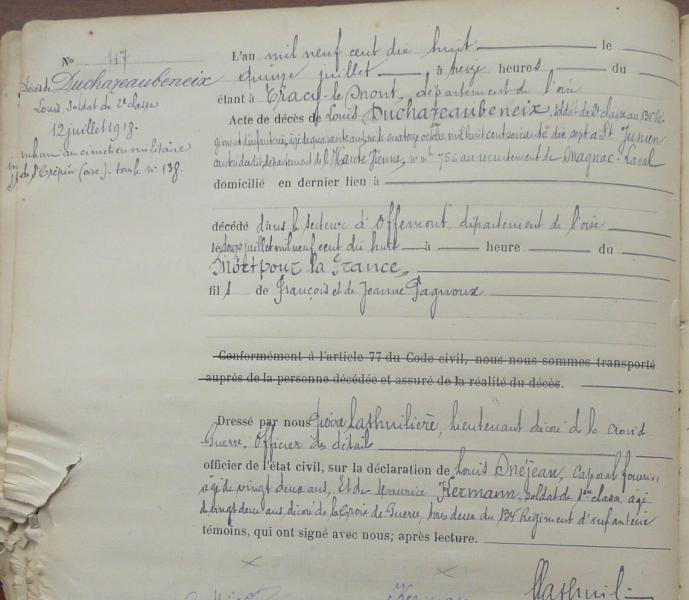 N° 47
Décès de Duchazeaubeneix
Louis, Soldat de 2e classe
12 juillet 1918.
inhumé au cimetière militaire
de St Crépin (oise). tombe n° 138.
L'an mil neuf cent dix huit le
quinze juillet à heures du
étant à Tracy-le-Mont, département de l'oise
Acte de décès de Louis Duchazeaubeneix, soldat de 2e classe au Ré
giment d'infanterie, âgé de quarante ans, né le quatorze octobre mil huit cent soixante dix sept à St Junien
canton dudit, département de l'Haute Vienne, n° mle 756 au recrutement de Magnac-Laval
domicilié en dernier lieu à
décédé dans le secteur d'Offémont, département de l'oise
le douze juillet mil neuf cent dix huit à heure du
Mort pour la France,
fils de François et de Jeanne Pagnoux
Conformément à l'article 77 du Code civil, nous nous sommes transporté
auprès de la personne décédée et assuré de la réalité du décès.
Dressé par nous Pierre Lathuilière, lieutenant décoré de la croix d
Guerre. Officier des détails
officier de l'état civil, sur la déclaration de Louis Méjean, Caporal fourrier,
âgé de vingt deux ans, Et de Maurice Hermann, soldat de 1ère classe, âgé
de vingt deux ans, décoré de la Croix de Guerre, tous deux du 134e Régiment d'infanterie
témoins, qui ont signé avec nous; après lecture.